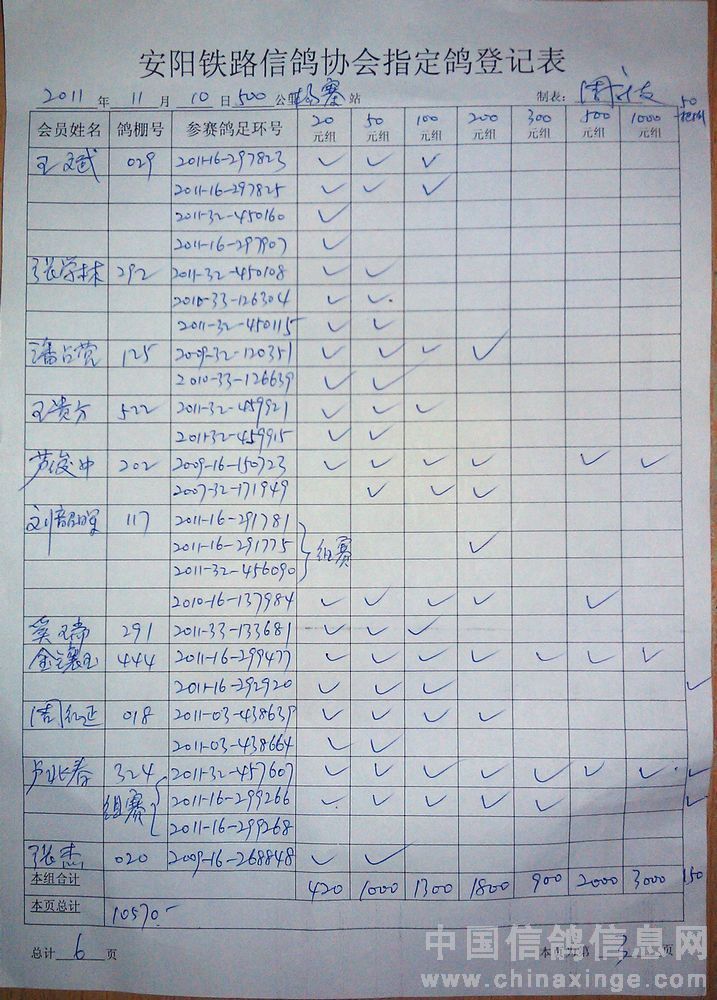 安阳铁路信鸽协会指定鸽登记表
2011 年 11 月 10 日 500 公里 寨 站 制表:
会员姓名 鸽棚号 参赛鸽足环号 20元组 50元组 100元组 200元组 300元组 500元组 1000元组 50
王文斌 029 2011-16-297823 ✓ ✓ ✓
2011-16-297825 ✓ ✓ ✓
2011-32-450160 ✓
2011-16-297907 ✓
张学林 292 2011-32-450108 ✓ ✓
2010-33-126304 ✓ ✓
2011-32-450115 ✓ ✓
潘占营 125 2009-32-120351 ✓ ✓ ✓ ✓
2010-33-126639 ✓ ✓
王贵方 522 2011-32-459921 ✓ ✓ ✓
2011-32-459915 ✓ ✓
芦俊中 202 2009-16-150723 ✓ ✓ ✓ ✓ ✓ ✓
2007-32-171949 ✓ ✓ ✓
刘韶辉 117 2011-16-291781
2011-16-291775 组赛 ✓
2011-32-456090
2010-16-137984 ✓ ✓ ✓ ✓ ✓
奚玉常 291 2011-33-133681 ✓ ✓ ✓
金玉 444 2011-16-299477 ✓ ✓ ✓ ✓ ✓ ✓ ✓
2011-16-292920 ✓ ✓ ✓ ✓
周红征 018 2011-03-438639 ✓ ✓ ✓ ✓
2011-03-438664 ✓ ✓
卢兆春 324 2011-32-457607 ✓ ✓ ✓ ✓ ✓ ✓ ✓ ✓
组赛 2011-16-299266 ✓ ✓ ✓ ✓ ✓ ✓
2011-16-299268
张杰 020 2009-16-268848 ✓ ✓
本组合计 420 1000 1300 1800 900 2000 3000 150
本页总计 10570.-
总计 6 页 本页为第 3 页
中国信鸽信息网
www.chinaxinge.com